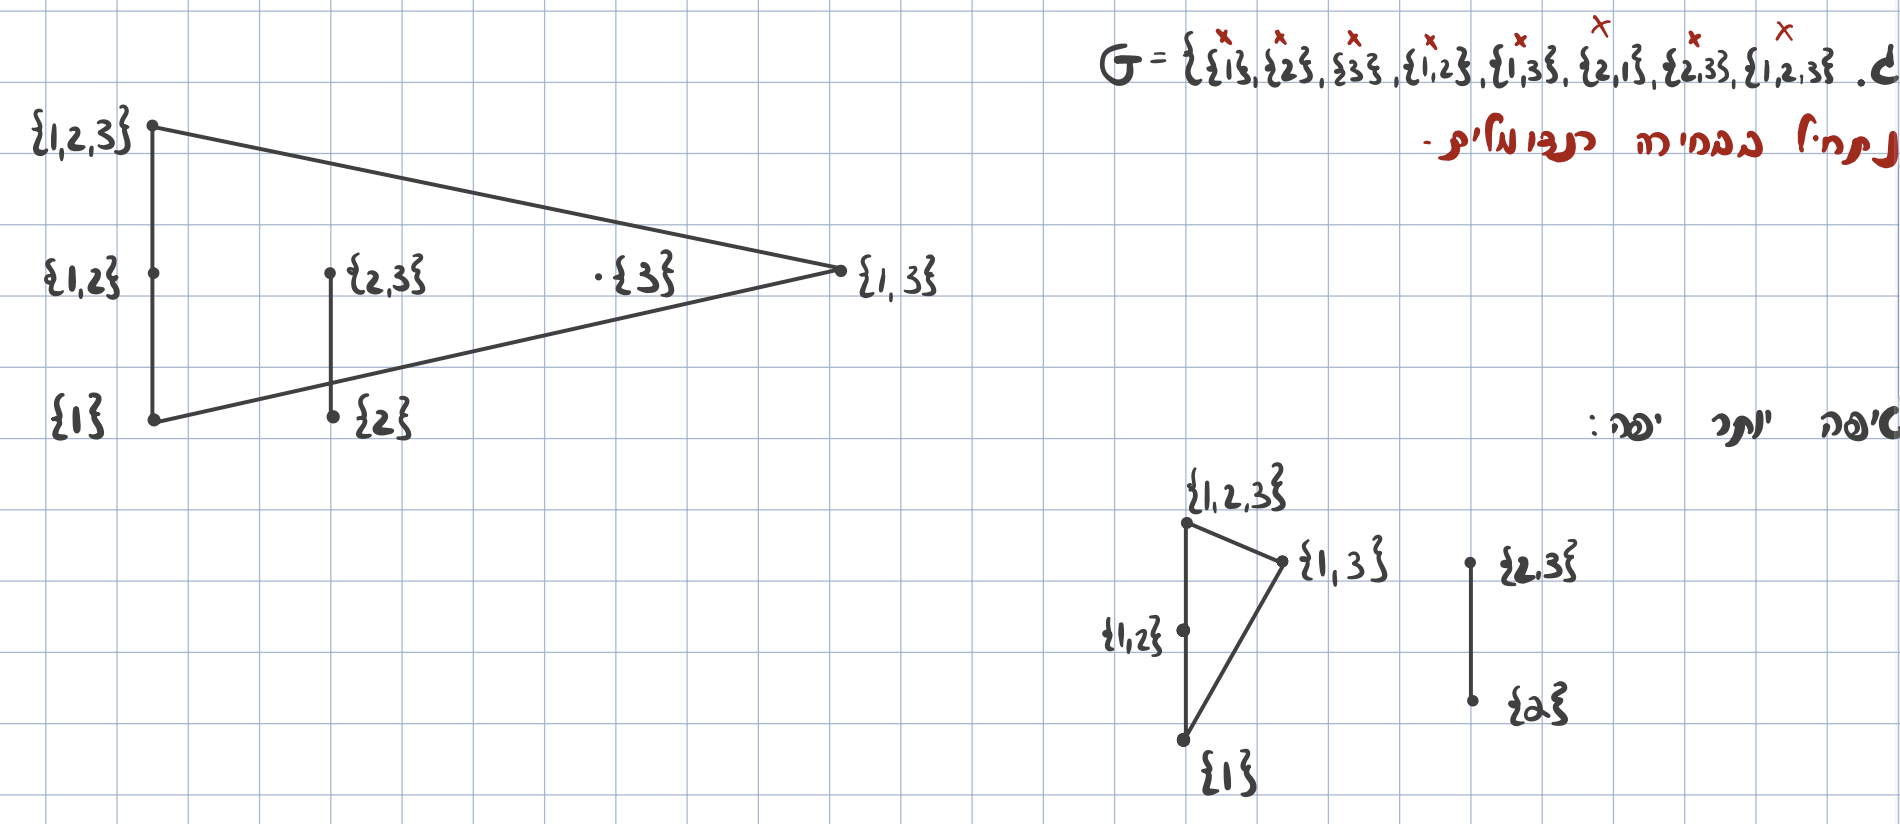 ג. G = {{1},{2},{3},{1,2},{1,3},{2,1},{2,3},{1,2,3}
נתחיל בבחירה רנדומלית.
{1,2,3}
{1,2}
{2,3}
.{3}
{1,3}
{1}
{2}
יותר יפה:
{1,2,3}
{1,3}
{2,3}
{1,2}
{2}
{1}